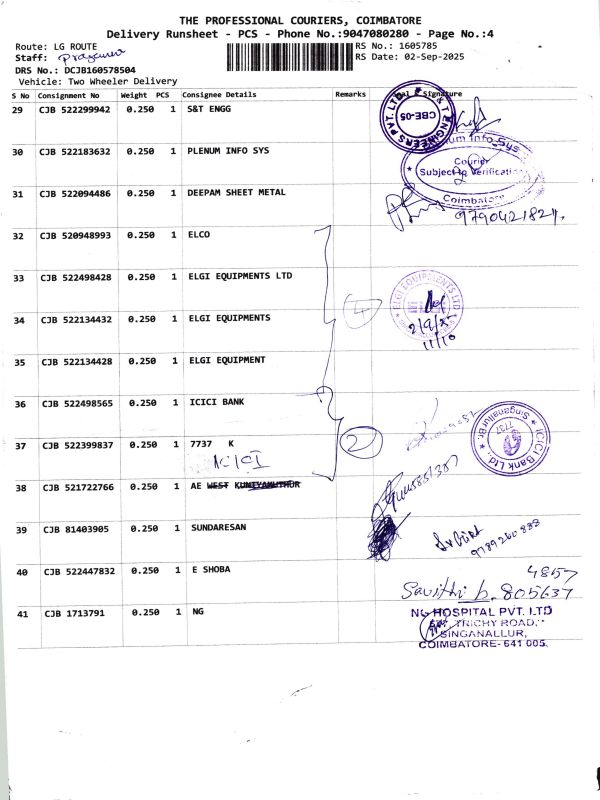 THE PROFESSIONAL COURIERS, COIMBATORE
Delivery Runsheet - PCS - Phone No.:9047080280 - Page No.:4
Route: LG ROUTE
RS No.: 1605785
Staff:
RS Date: 02-Sep-2025
DRS No.: DCJB160578504
Vehicle: Two Wheeler Delivery
S No Consignment No Weight PCS Consignee Details Remarks Signature
29 CJB 522299942 0.250 1 S&T ENGG
CBE-05
30 CJB 522183632 0.250 1 PLENUM INFO SYS
Info Sys
Courier
Subject to Verification
Coimbatore
31 CJB 522094486 0.250 1 DEEPAM SHEET METAL
32 CJB 520948993 0.250 1 ELCO
33 CJB 522498428 0.250 1 ELGI EQUIPMENTS LTD
4
ELGI EQUIPMENTS LTD
2/9/25
11/10
34 CJB 522134432 0.250 1 ELGI EQUIPMENTS
35 CJB 522134428 0.250 1 ELGI EQUIPMENT
36 CJB 522498565 0.250 1 ICICI BANK
2
ICICI Bank Ltd.,
Singanallur Br.
7737
37 CJB 522399837 0.250 1 7737 K
ICICI
38 CJB 521722766 0.250 1 AE WEST KUNIYAMUTHUR
39 CJB 81403905 0.250 1 SUNDARESAN
9789260888
40 CJB 522447832 0.250 1 E SHOBA
4857
Savithi b. 805637
41 CJB 1713791 0.250 1 NG
NG HOSPITAL PVT. LTD
TRICHY ROAD,
SINGANALLUR,
COIMBATORE- 641 005.